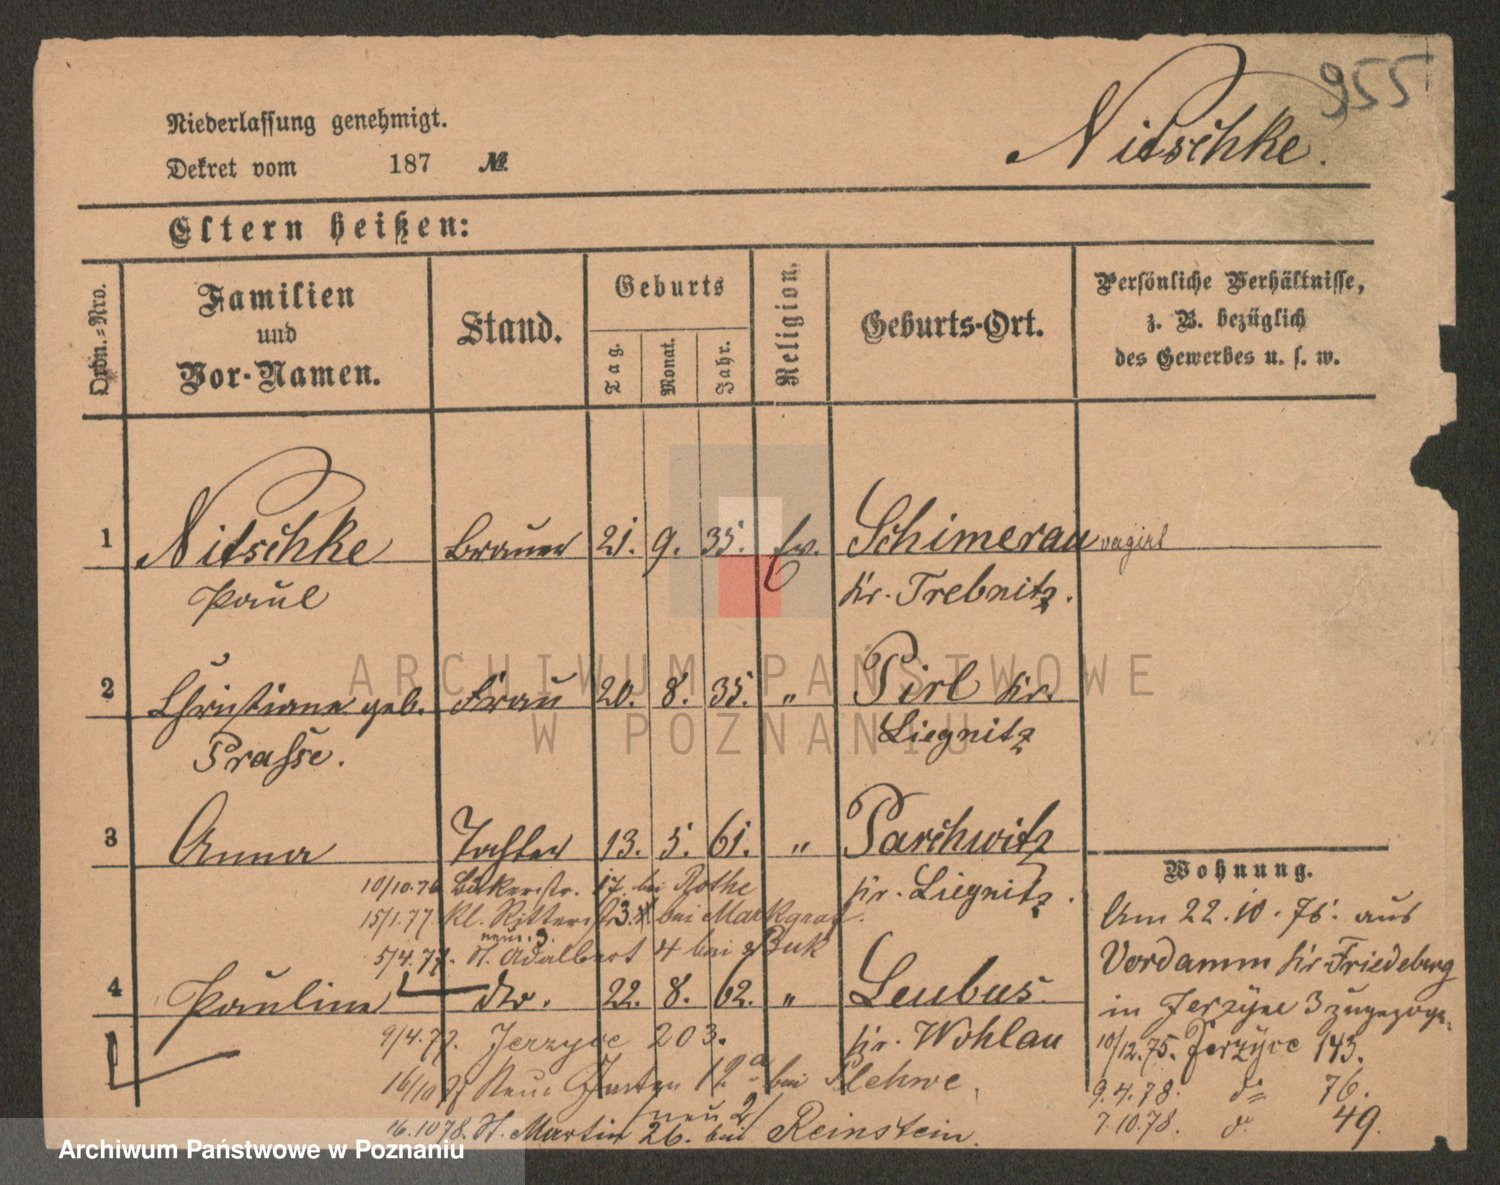 955
Nitschke.
Niederlassung genehmigt.
Dekret vom 187 №
Eltern heißen:
Ordn.-Nro.
Familien
und
Vor-Namen.
Stand.
Geburts
Tag.
Monat.
Jahr.
Religion.
Geburts-Ort.
Persönliche Verhältnisse,
z. B. bezüglich
des Gewerbes u. s. w.
1 Nitschke Brauer 21. 9. 35. ev. Schimerau
Paul Kr. Trebnitz.
2 Christiane geb. Frau 20. 8. 35. " Pirl Kr.
Prasse. Liegnitz
3 Anna Tochter 13. 5. 61. " Parchwitz
Kr. Liegnitz.
10/10.76 Bäckerstr. 17. bei Rothe
15/1.77. kl. Ritterstr. 3. bei Markgraf.
neue 3.
5/4.77. St. Adalbert 4 bei Buk
4 Pauline do. 22. 8. 62. " Leubus.
Kr. Wohlau
9/4.77. Jerzyce 203.
16/10 77 Neue Garten 12a bei Plehwe.
/neu 2/
16.10 78. St. Martin 26. bei Reinstein.
Wohnung.
Am 22.10.75. aus
Vordamm Kr. Friedeberg
in Jerzyce 3 zugezogen.
10/12.75. Jerzyce 143.
9.4.78. do 76.
7.10.78. do 49.
ARCHIWUM PAŃSTWOWE
W POZNANIU
Archiwum Państwowe w Poznaniu